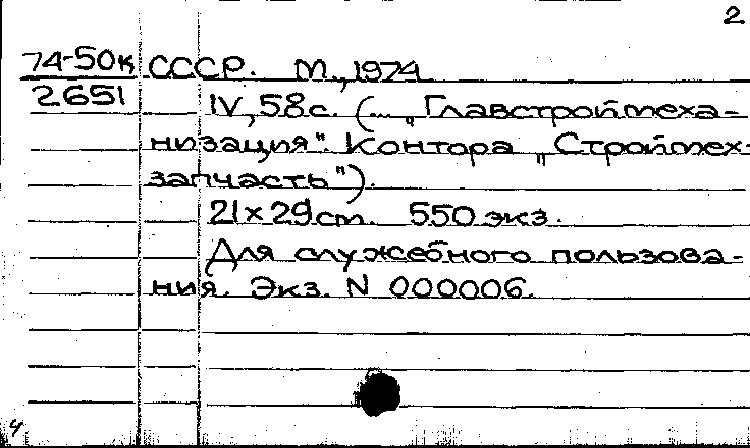 2
74-50к СССР. М., 1974
2651 IV, 58с. (... „Главстроймеха-
низация". Контора „Строймех-
запчасть").
21×29см. 550 экз.
Для служебного пользова-
ния. Экз. N 000006.
4